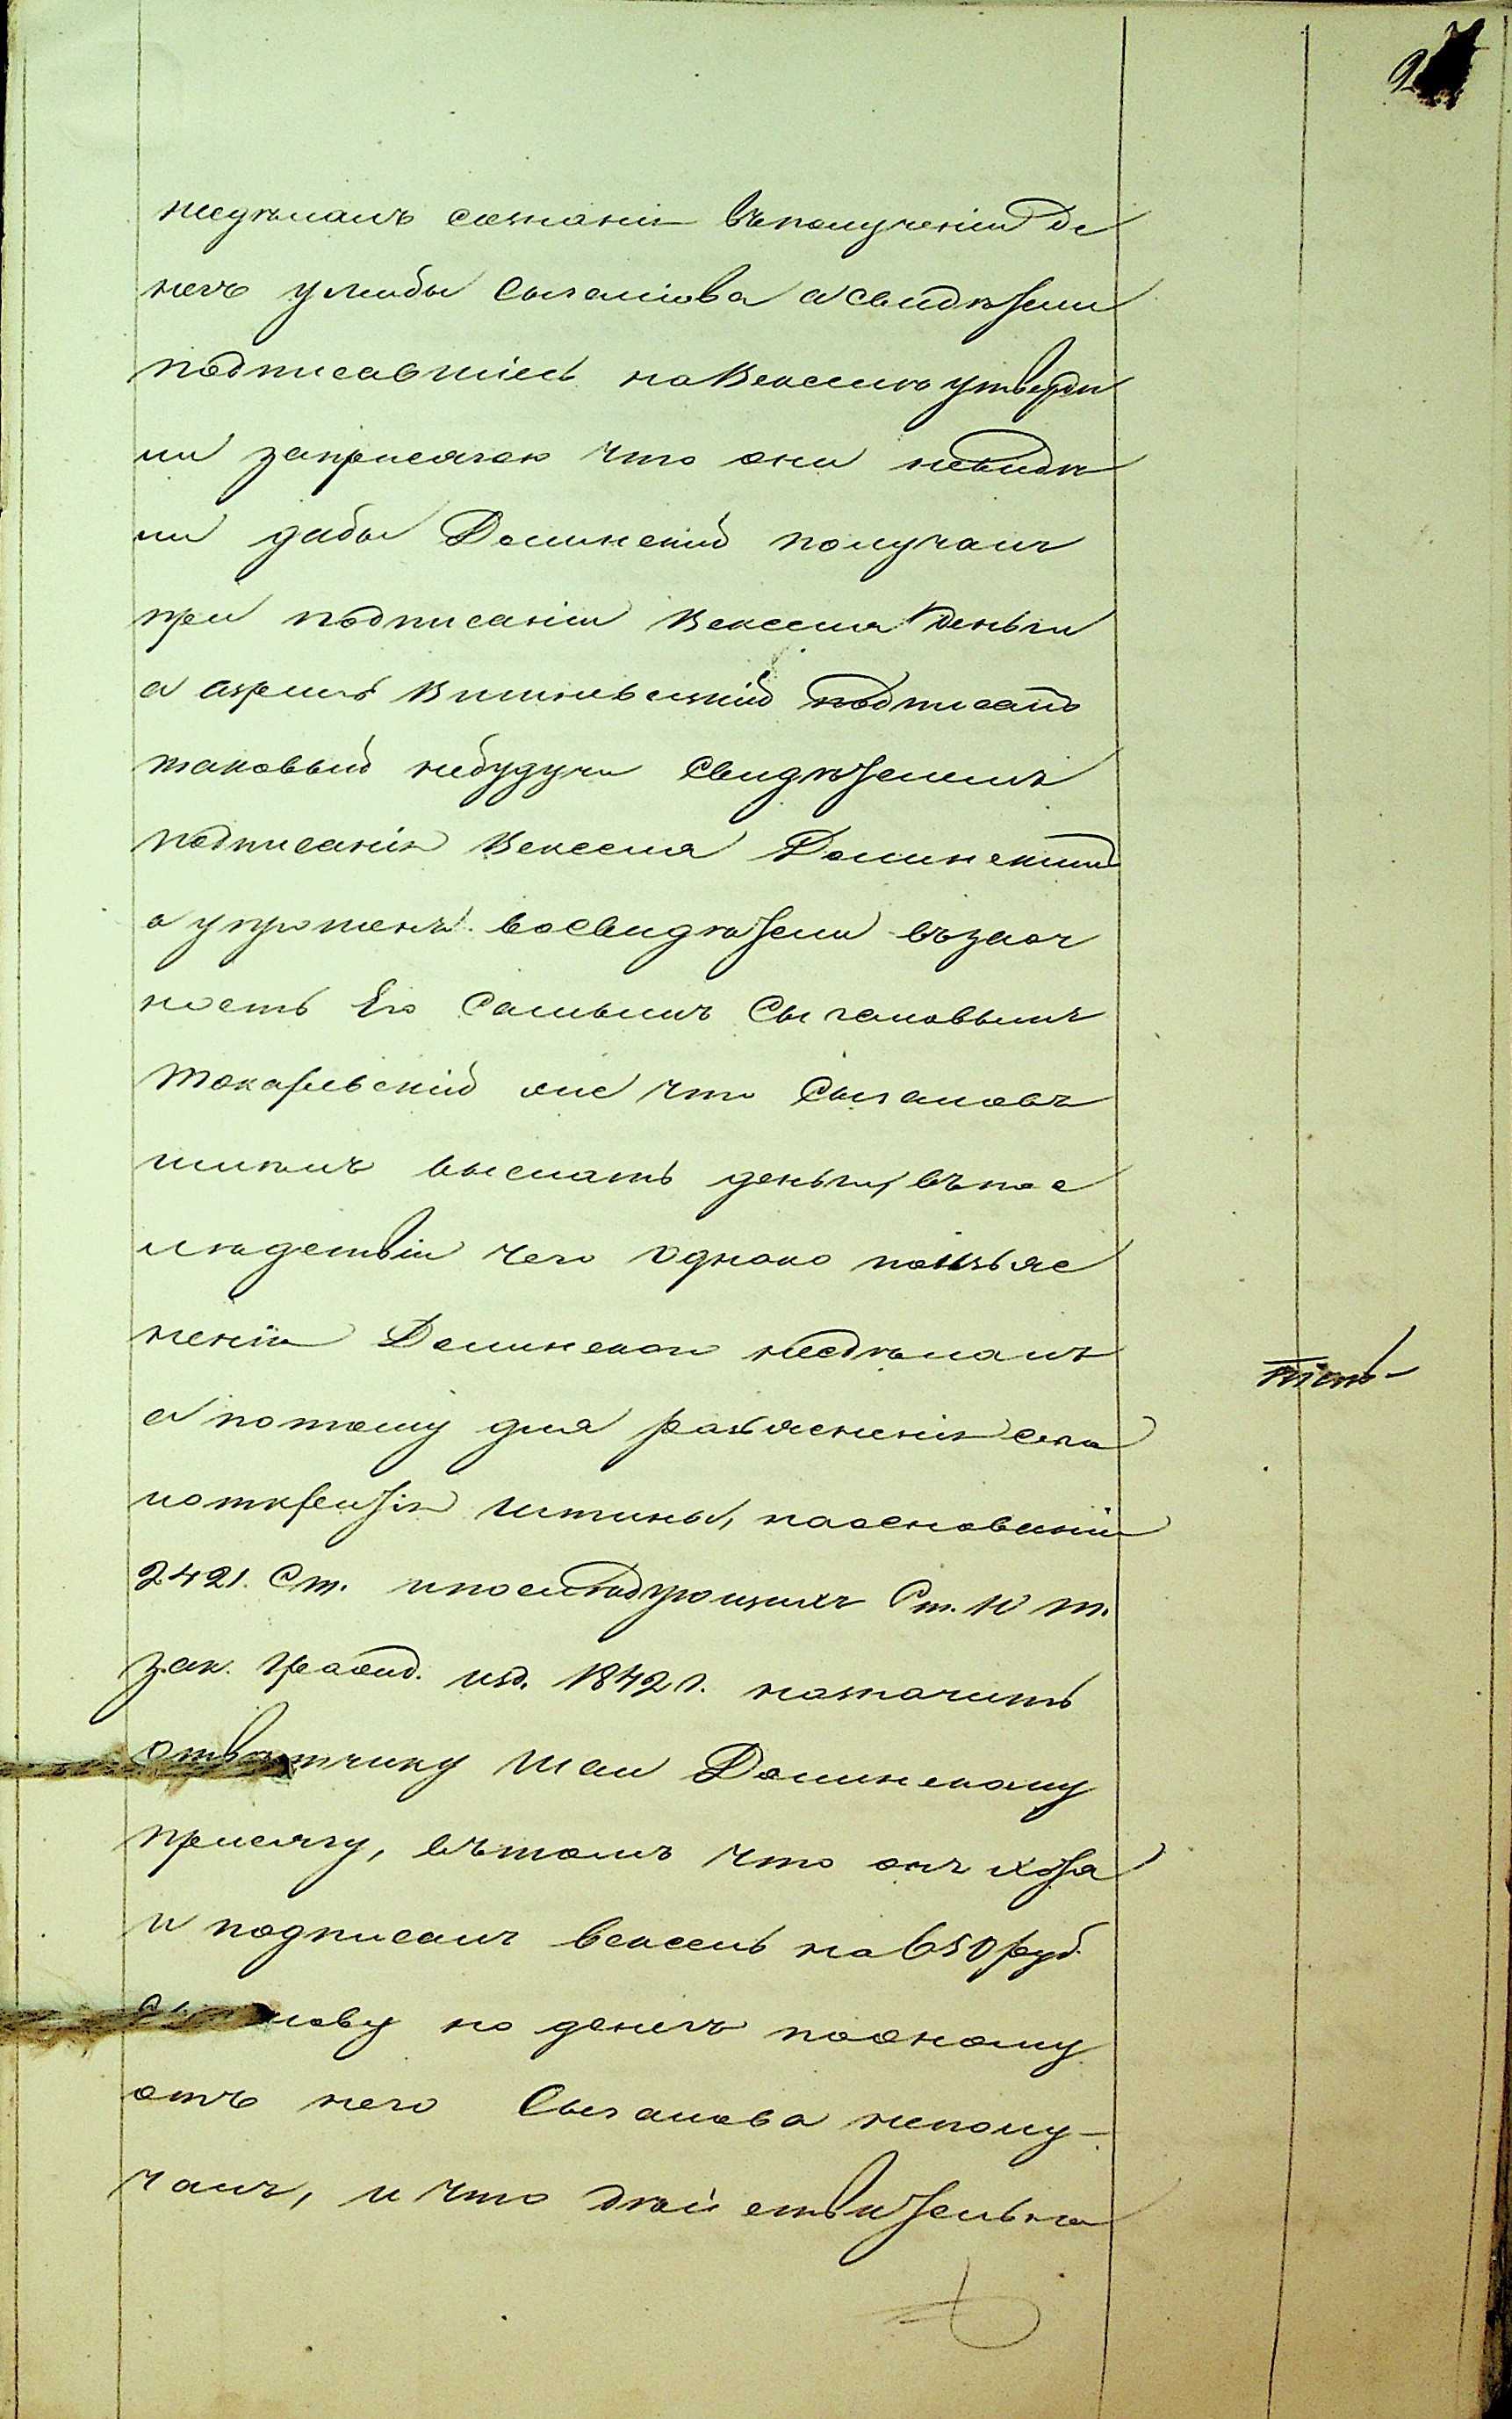 несделалъ сознанія въполученіи де
негъ улибы Сыгалова а свидѣтели
подписавшіесь на Векселѣ утверди
ли заприсягою что они невидѣ
ли дабы Долинскій получалъ
при подписаніи Векселя деньги
а Вишневецкій подписалъ
таковый небудучи Свидѣтелемъ
подписанія Векселя Долинскимъ
а упрошенъ восвидѣтели възаоч
ность Его Самымъ Сыгаловымъ
Токарлевскій же что Сыгаловъ
имѣлъ выслать деньги, въпос
лѣдствіи чего однако поизъяс
ненію Долинского несделалъ
а потому для разъясненія сего
истины, наосновании
2421. Ст. ипослѣдующихъ Ст. 10 т.
зак. гражд. изд. 1842 г. назначить
отвѣтчику Долинскому
присягу, вътомъ что онъ хотя
и подписалъ вексель на 650 руб.
Сыгалову но денегъ поономy
отъ него Сыгалова неполу-
чалъ, и что дѣйствительно